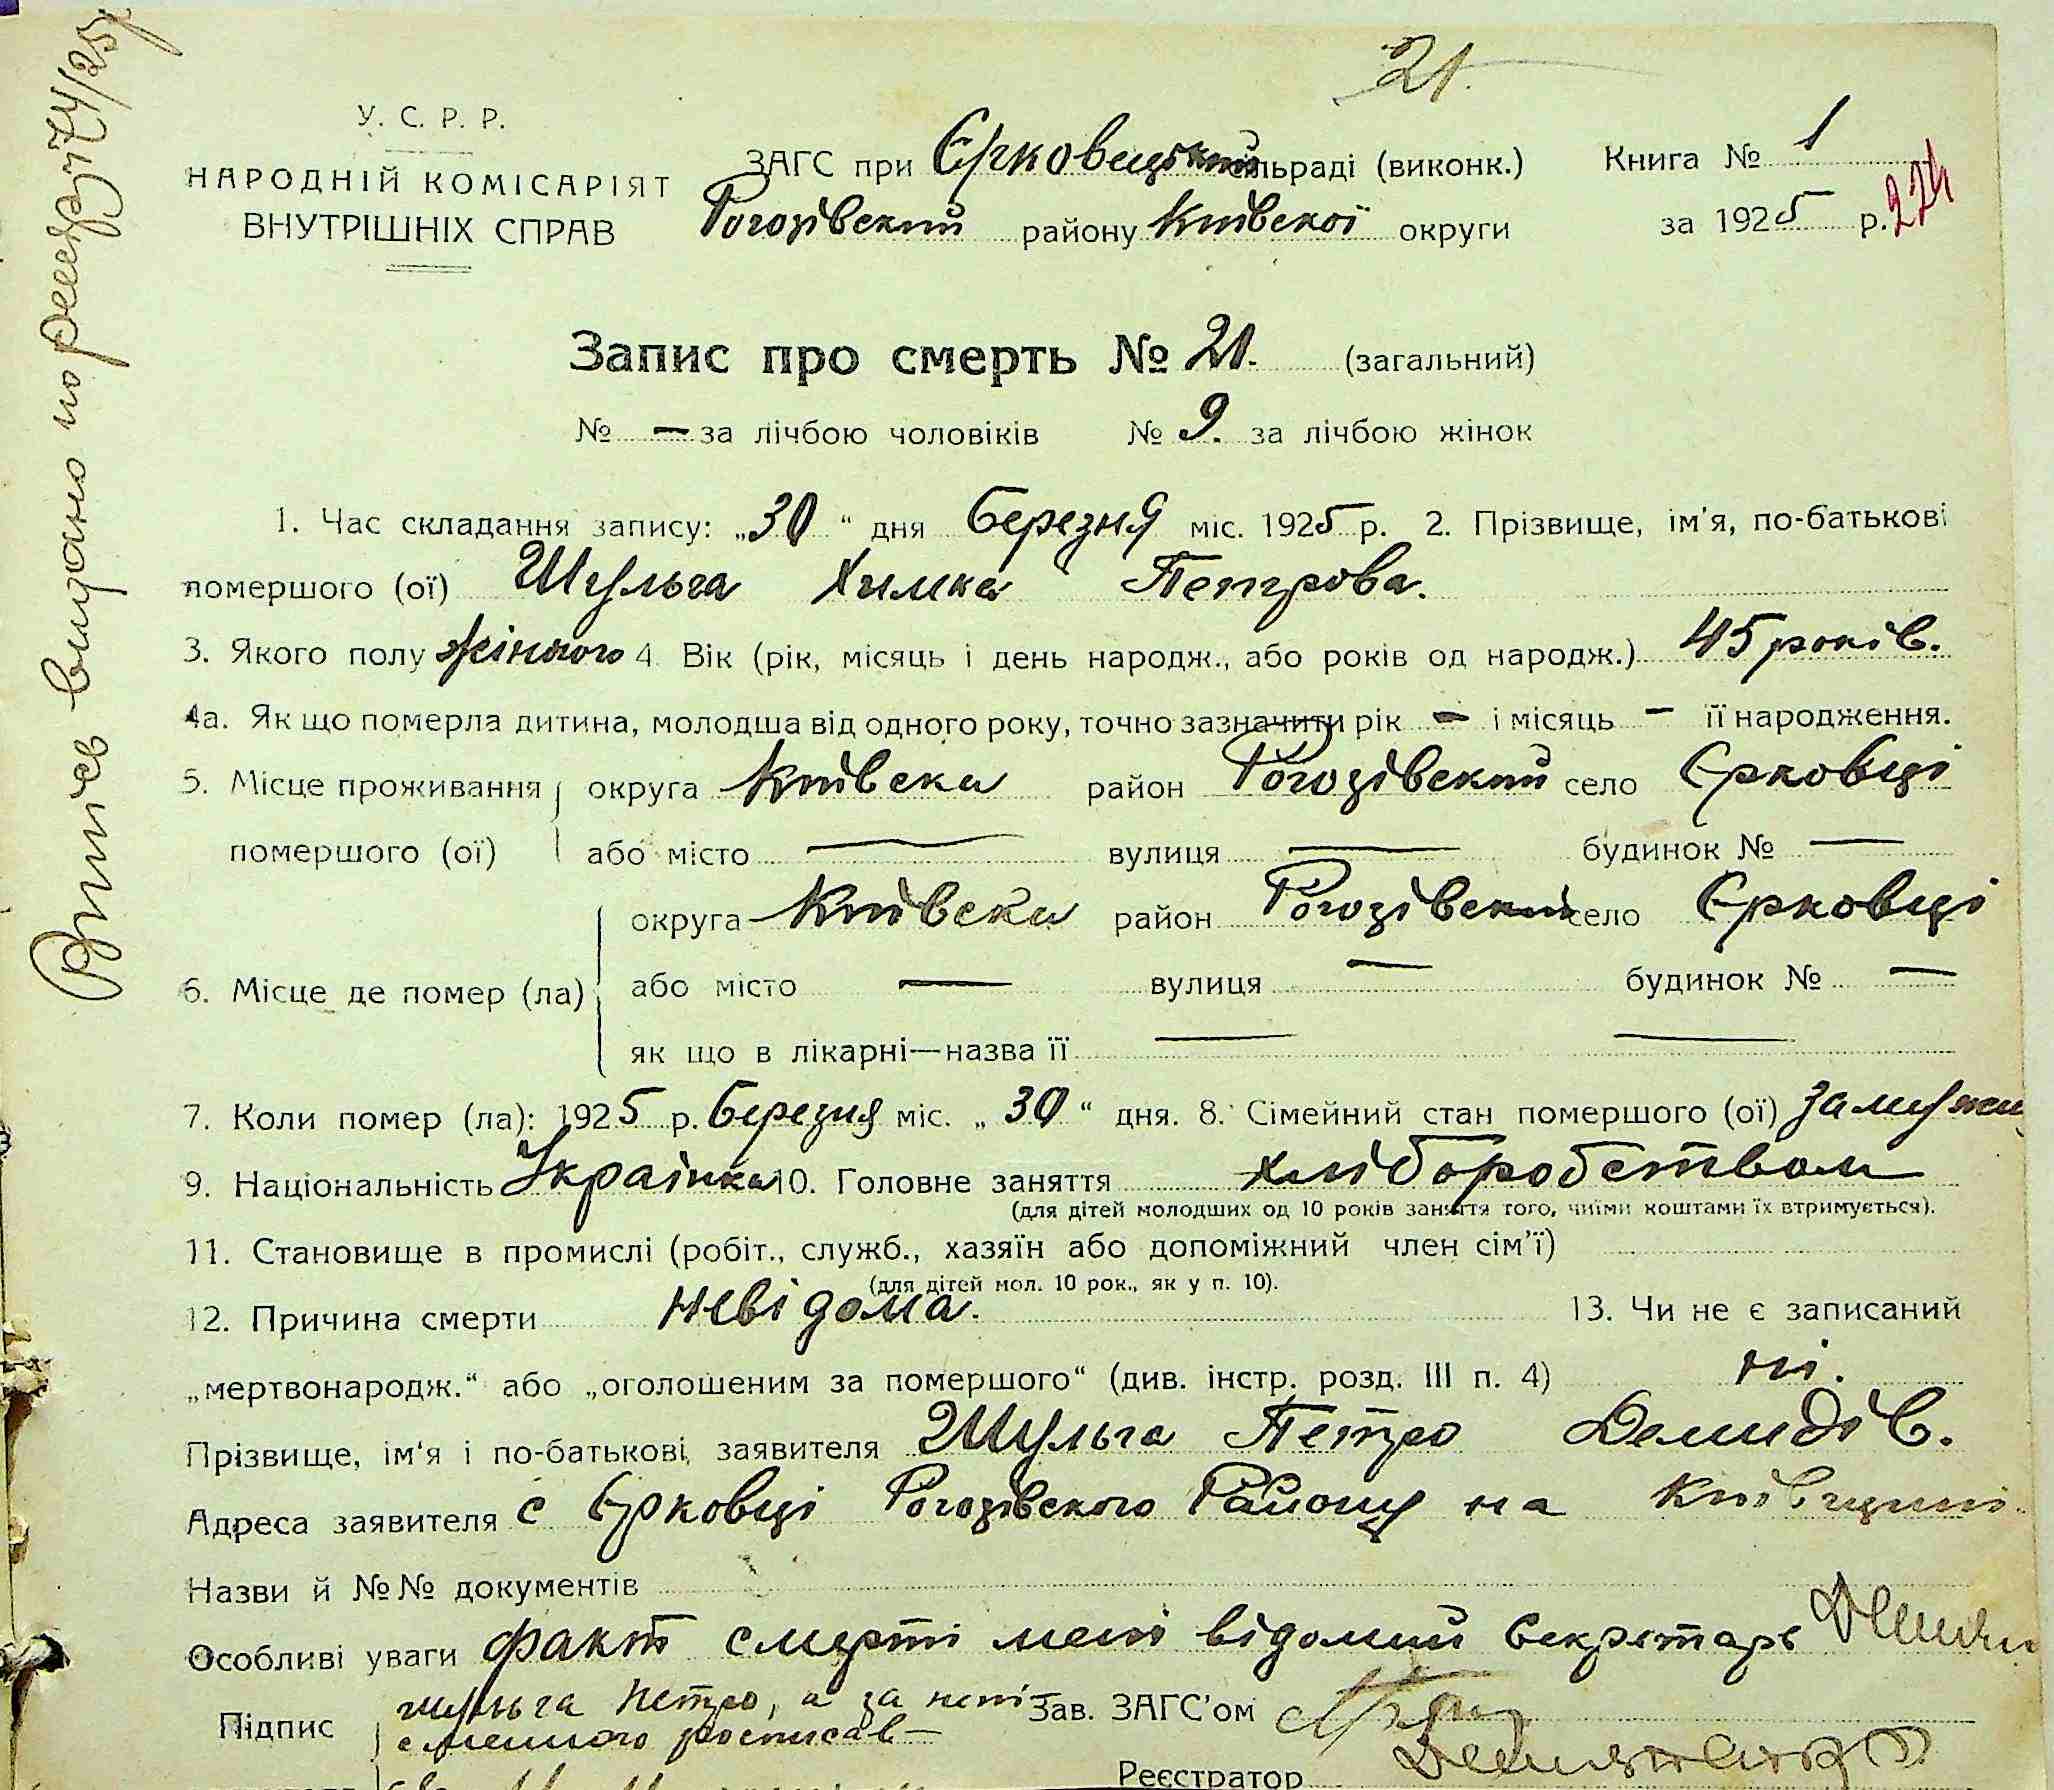 21.
У. С. Р. Р.
НАРОДНІЙ КОМІСАРІЯТ
ВНУТРІШНІХ СПРАВ
ЗАГС при Єрковецький сільраді (виконк.)
Рогозівский району Київскої округи
Книга № 1
за 1925 р. 224
Запис про смерть № 21. (загальний)
№ — за лічбою чоловіків № 9. за лічбою жінок
1. Час складання запису: „30“ дня березня міс. 1925 р. 2. Прізвище, ім'я, по-батькові
помершого (ої) Шульга Химка Петрова.
3. Якого полу жіночого 4. Вік (рік, місяць і день народж., або років од народж.) 45 років.
4а. Як що померла дитина, молодша від одного року, точно зазначити рік — і місяць — її народження.
5. Місце проживання округа Київска район Рогозівский село Єрковці
помершого (ої) або місто — вулиця — будинок № —
округа Київска район Рогозівский село Єрковці
6. Місце де помер (ла) або місто — вулиця — будинок № —
як що в лікарні—назва її — —
7. Коли помер (ла): 1925 р. березня міс. „30“ дня. 8. Сімейний стан помершого (ої) замужня
9. Національність Українка 10. Головне заняття хліборобством
(для дітей молодших од 10 років заняття того, чиїми коштами їх втримується).
11. Становище в промислі (робіт., служб., хазяїн або допоміжний член сім'ї)
(для дітей мол. 10 рок., як у п. 10).
12. Причина смерти невідома. 13. Чи не є записаний
„мертвонародж.“ або „оголошеним за помершого“ (див. інстр. розд. III п. 4) ні.
Прізвище, ім'я і по-батькові заявителя Шульга Петро Демидів.
Адреса заявителя с Єрковці Рогозівского Району на Київщині
Назви й №№ документів
Особливі уваги факт смерти мені відомий Секретарь
Підпис Шульга Петро, а за неписьменного росписав—
Зав. ЗАГС'ом
Реєстратор
Витяг видано по реєстру